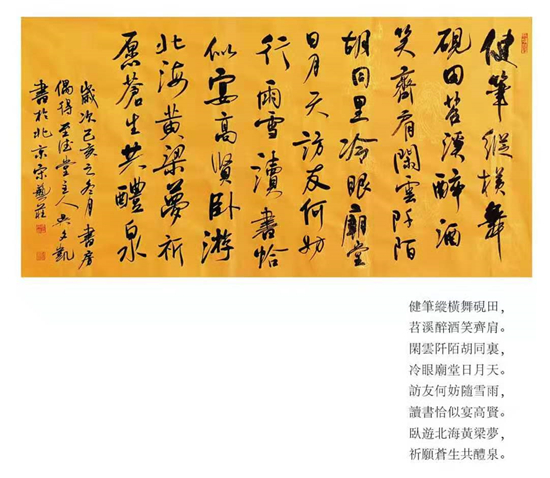 健筆縱橫舞
硯田苕溪醉酒
笑齊肩閑雲阡陌
胡同里冷眼廟堂
日月天訪友何妨
行雨雪讀書恰
似宴高賢卧游
北海黃梁夢祈
愿蒼生共醴泉
歲次己亥之冬月書房
偶得堂主人
書於北京宋藝莊
健筆縱橫舞硯田，
苕溪醉酒笑齊肩。
閑雲阡陌胡同裏，
冷眼廟堂日月天。
訪友何妨隨雪雨，
讀書恰似宴高賢。
臥遊北海黃梁夢，
祈願蒼生共醴泉。